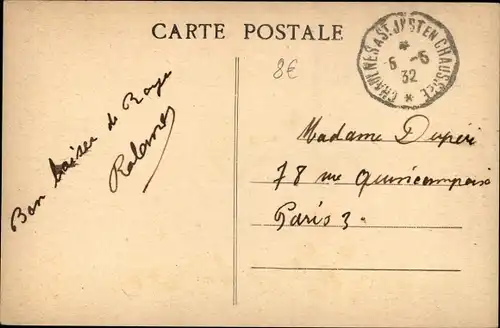 CARTE POSTALE
8€
CHAULNES A ST. JUST EN CHAUSSEE
6 - 5
32
Bon baiser de Roye
Madame Dupéri
78 rue Quincampoix
Paris 3e